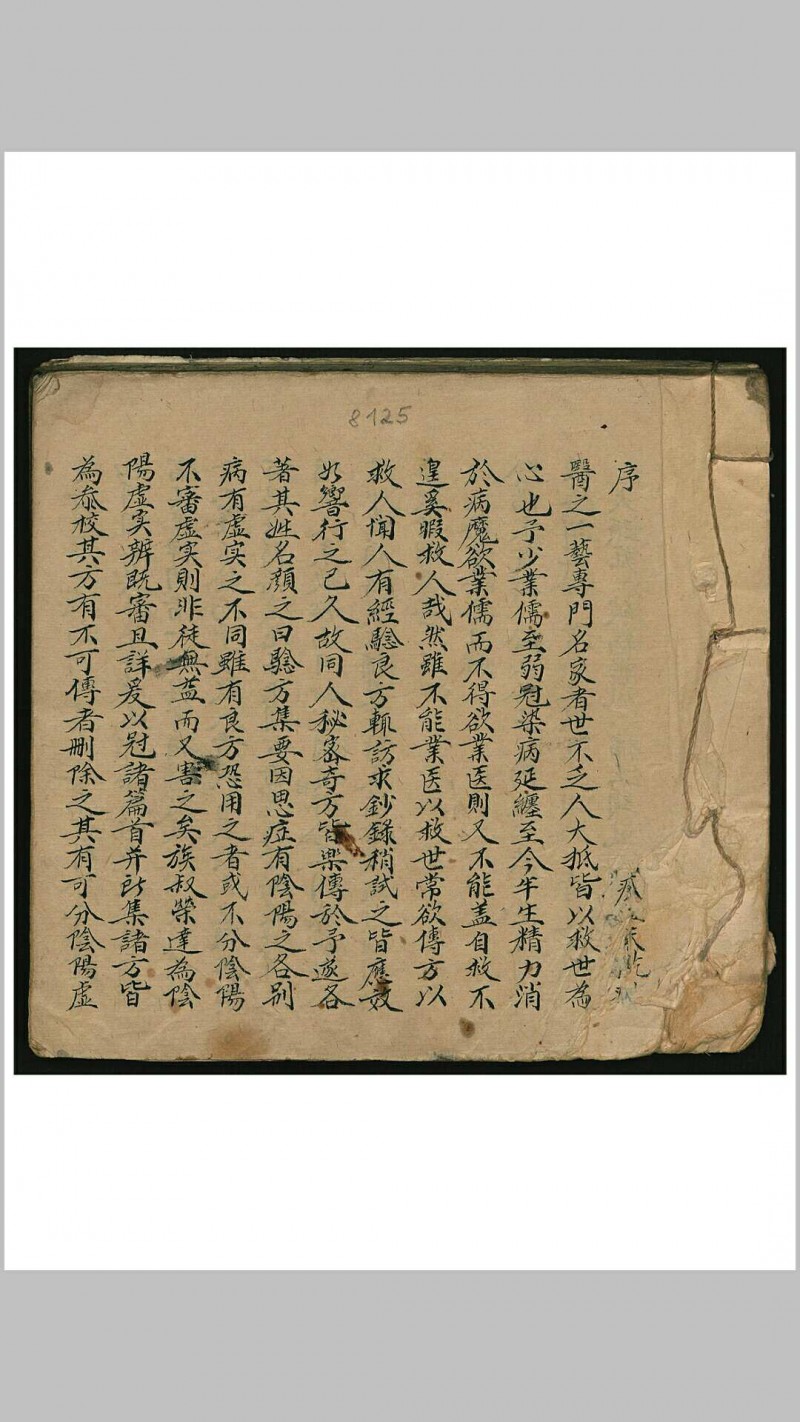 8125
序
醫之一藝專門名家者世不乏人大抵皆以救世為
心也予少業儒至弱冠染病延纏至今半生精力消
於病魔欲業儒而不得欲業医則又不能盖自救不
遑奚暇救人哉然雖不能業医以救世常欲傳方以
救人聞人有經驗良方輒訪求鈔錄稍試之皆應效
如響行之已久故同人秘密奇方皆樂傳於予遂各
著其姓名顏之曰驗方集要因思症有陰陽之各别
病有虚实之不同雖有良方恐用之者或不分陰陽
不審虚实則非徒無益而又害之矣族叔榮達為陰
陽虚实辨既審且詳爰以冠諸篇首并所集諸方皆
為叅校其方有不可傳者删除之其有可分陰陽虚